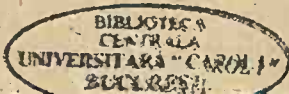 BIBLIOTECA
CENTRALA
UNIVERSITARA "CAROL I"
BUCURESTI